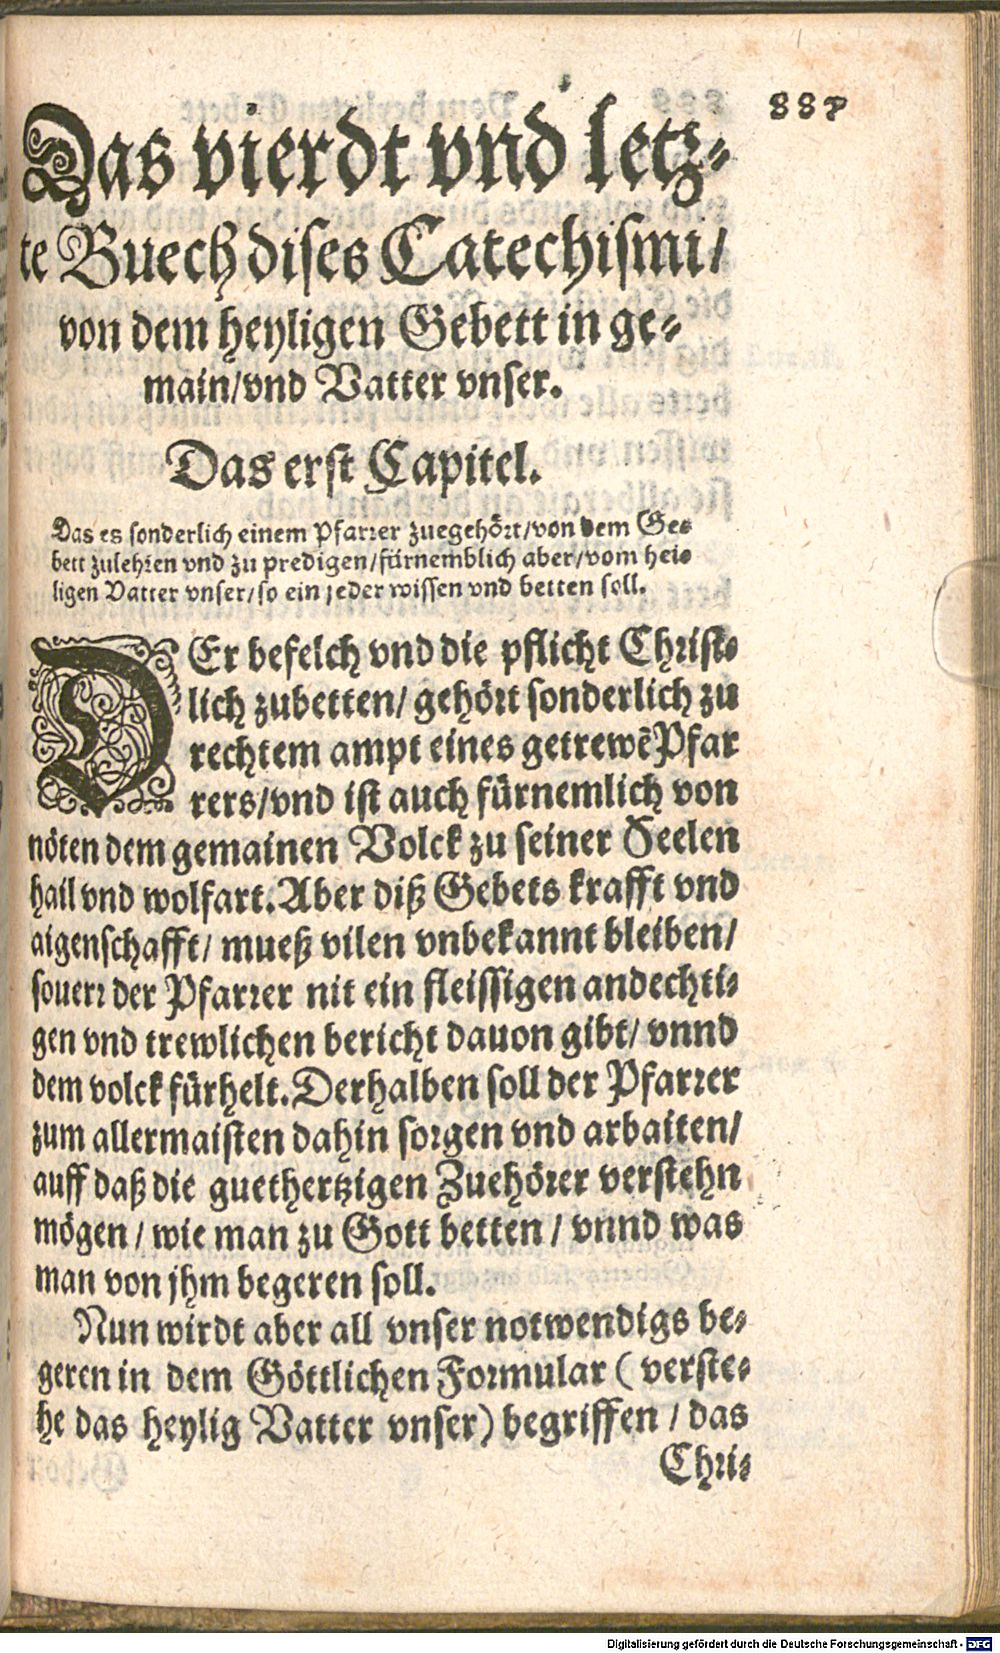 889
Das vierdt vnd letz-
te Buech dises Catechismi/
von dem heyligen Gebett in ge-
main/vnd Vatter vnser.
Das erst Capitel.
Das es sonderlich einem Pfarrer zuegehört/von dem Ge-
bett zulehren vnd zu predigen/fürnemblich aber/vom hei-
ligen Vatter vnser/so ein jeder wissen vnd betten soll.
DEr befelch vnd die pflicht Christ-
lich zubetten/ gehört sonderlich zu
rechtem ampt eines getrewẽ Pfar
rers/vnd ist auch fürnemlich von
nöten dem gemainen Volck zu seiner Seelen
hail vnd wolfart. Aber diß Gebets krafft vnd
aigenschafft/ mueß vilen vnbekannt bleiben/
souerr der Pfarrer nit ein fleissigen andechti-
gen vnd trewlichen bericht dauon gibt/ vnnd
dem volck fürhelt. Derhalben soll der Pfarrer
zum allermaisten dahin sorgen vnd arbaiten/
auff daß die guethertzigen Zuehörer verstehn
mögen/ wie man zu Gott betten/ vnnd was
man von jhm begeren soll.
Nun wirdt aber all vnser notwendigs be-
geren in dem Göttlichen Formular (verste-
he das heylig Vatter vnser) begriffen/ das
Chri-
Digitalisierung gefördert durch die Deutsche Forschungsgemeinschaft - DFG